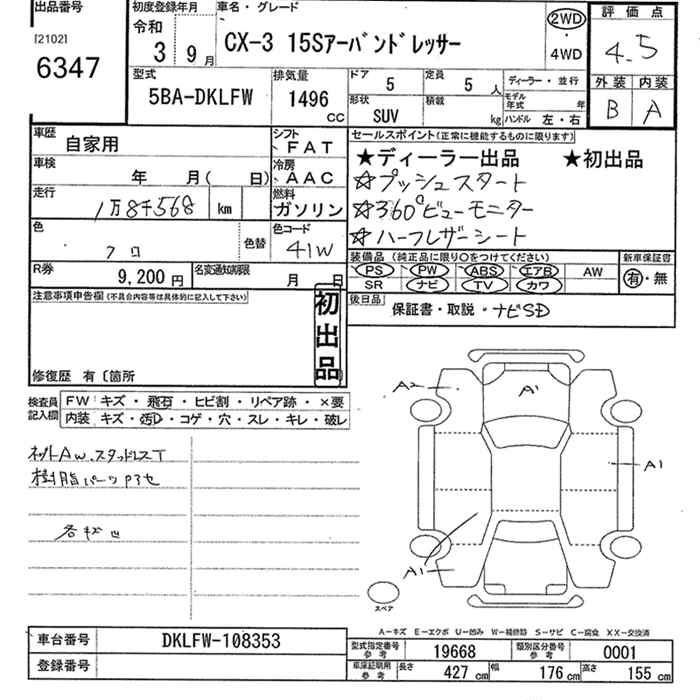 出品番号
[2102]
6347
初度登録年月
令和
3 9月
車名・グレード
CX-3 15Sアーバンドレッサー
2WD
・
4WD
評価点
4.5
外装 内装
B A
型式
5BA-DKLFW
排気量
1496
CC
ドア
5
定員
5人
形状
SUV
積載
kg
ディーラー・並行
モデル年式 年
ハンドル 左・右
車歴
自家用
シフト
FAT
車検
年 月( 日)
冷房
AAC
走行
1万8千568 km
燃料
ガソリン
色
クロ
色替
色コード
41W
R券
9,200円
名変通知期限
月 日
セールスポイント(正常に機能するものに限ります)
★ディーラー出品 ★初出品
☆プッシュスタート
☆360°ビューモニター
☆ハーフレザーシート
装備品(純正品に限り○をつけてください)
PS PW ABS エアB AW
SR ナビ TV カワ
新車保証書
有・無
後日品
保証書・取説・ナビSD
注意事項申告欄(不具合内容等は具体的に記入して下さい)
初出品
修復歴 有〔箇所
検査員記入欄
FW キズ・飛石・ヒビ割・リペア跡・×要
内装 キズ・汚D・コゲ・穴・スレ・キレ・破レ
ネットAw.スタッドレスT
樹脂パーツ
各キズ
A2
A1
A1
A1
スペア
A-キズ E-エクボ U-凹み W-補修跡 S-サビ C-腐食 XX-交換済
車台番号
DKLFW-108353
登録番号
型式指定番号参考
19668
類別区分番号参考
0001
車庫証明用参考
長さ 427cm 幅 176cm 高さ 155cm